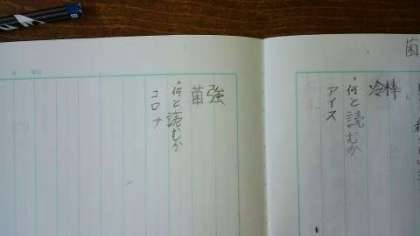 菌
冷棒
・何と読むか
アイス
菌強
・何と読むか
コロナ